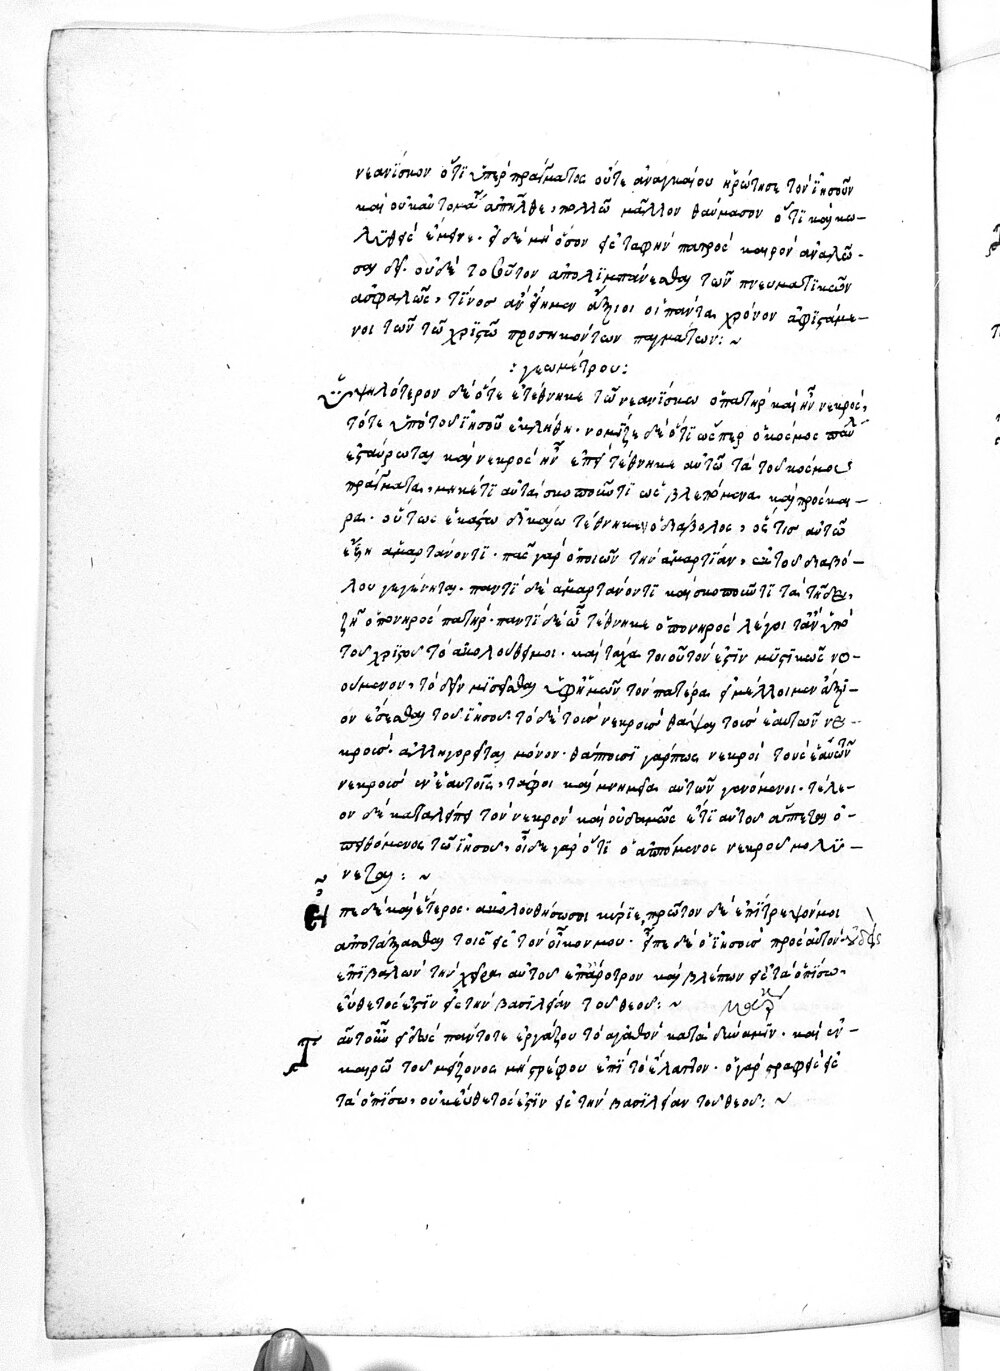 νεανίσκον ὅτι ὑπὲρ πράγματος οὕτε ἀναγκαίου ἠρώτησε τὸν ἰησοῦν
καὶ οὐκ αὐτομα ἀπῆλθε, πολλῶ μᾶλλον θαύμασον ὅτι καὶ κω-
λυθεὶς ἔμεινε. εἰ δὲ μὴ ὅσον εἰς ταφὴν πατρὸς καιρὸν ἀναλῶ-
σαι δεῖ. οὐδὲ τοσοῦτον ἀπολιμπάνεσθαι τῶν πνευματικῶν
ἀσφαλῶς, τίνος ἂν εἴημεν ἄξιοι οἱ πάντα χρόνον ἀφιστάμε-
νοι τῶν τῶ χριστῶ προσηκόντων πραγμάτων: ~
:γεωμέτρου:
Ὑψηλότερον δὲ ὅτε ἐτέθνηκε τῶ νεανίσκω ὁ πατὴρ καὶ ἦν νεκρὸς,
τότε ὑπὸ τοῦ ἰησοῦ ἐκλήθη. νομίζε δὲ ὅτι ὥσπερ ὁ κόσμος παύλ
ἐσταύρωται καὶ νεκρὸς ἦν ἐπεὶ τέθνηκε αὐτῶ τὰ τοῦ κόσμου
πράγματα, μηκέτι αὐτὰ σκοποῦντι ὡς βλεπόμενα καὶ πρόσκαι-
ρα. οὕτως ἑκάστω δικαίω τέθνηκεν ὁ διάβολος, ὅστις αὐτῶ
ἔζη ἁμαρτάνοντι. πᾶς γὰρ ὁ ποιῶν τὴν ἁμαρτίαν, ἐκ τοῦ διαβό-
λου γεγένηται. παντὶ δὲ ἁμαρτάνοντι καὶ σκοποῦντι τὰ τῆδε,
ζῆ ὁ πονηρὸς πατήρ. παντὶ δὲ ὧ τέθνηκε ὁ πονηρὸς λέγοιτ ἂν ὑπὸ
τοῦ χριστοῦ τὸ ἀκολούθει μοι. καὶ τάχα τοιοῦτον ἐστὶν μυστικῶς νο-
ούμενον, τὸ δεῖν μισεῖσθαι ὑφ ἡμῶν τὸν πατέρα εἰ μέλλοιμεν ἄξι-
οι ἔσεσθαι τοῦ ἰησοῦ. τὸ δὲ τοῖς νεκροῖς θάψαι τοὺς ἑαυτῶν νε-
κροὺς. ἀλληγορεῖται μόνον. θάπτουσι γάρ πως νεκροὶ τοὺς ἑαυτῶν
νεκροὺς ἐν ἑαυτοῖς, τάφοι καὶ μνημεῖα αὐτῶν γενόμενοι. τέλε-
ον δὲ καταλείπει τὸν νεκρὸν καὶ οὐδαμῶς ἔτι αὐτοῦ ἅπτεται ὁ
πειθόμενος τῶ ἰησοῦ, οἶδε γὰρ ὅτι ὁ ἁπτόμενος νεκροῦ μολύ-
νεται: ~
Εἶπε δὲ καὶ ἕτερος. ἀκολουθήσω σοι κύριε, πρῶτον δὲ ἐπίτρεψόν μοι
ἀποτάξασθαι τοῖς εἰς τὸν οἶκον μου. εἶπε δὲ ὁ ἰησοῦς πρὸς αὐτὸν. οὐδεὶς
ἐπιβαλὼν τὴν χεῖρα αὐτοῦ ἐπ ἄροτρον καὶ βλέπων εἰς τὰ ὀπίσω,
εὔθετος ἐστὶν εἰς τὴν βασιλείαν τοῦ θεοῦ: ~
Τ αῦτ οὖν εἰδὼς πάντοτε ἐργάζου τὸ ἀγαθὸν κατὰ δύναμιν. καὶ ἐν
καιρῶ τοῦ μείζονος μὴ στρέφου ἐπὶ τὸ ἔλαττον. ὁ γὰρ στραφεὶς εἰς
τὰ ὀπίσω, οὐκ εὔθετος ἐστὶν εἰς τὴν βασιλείαν τοῦ θεοῦ: ~